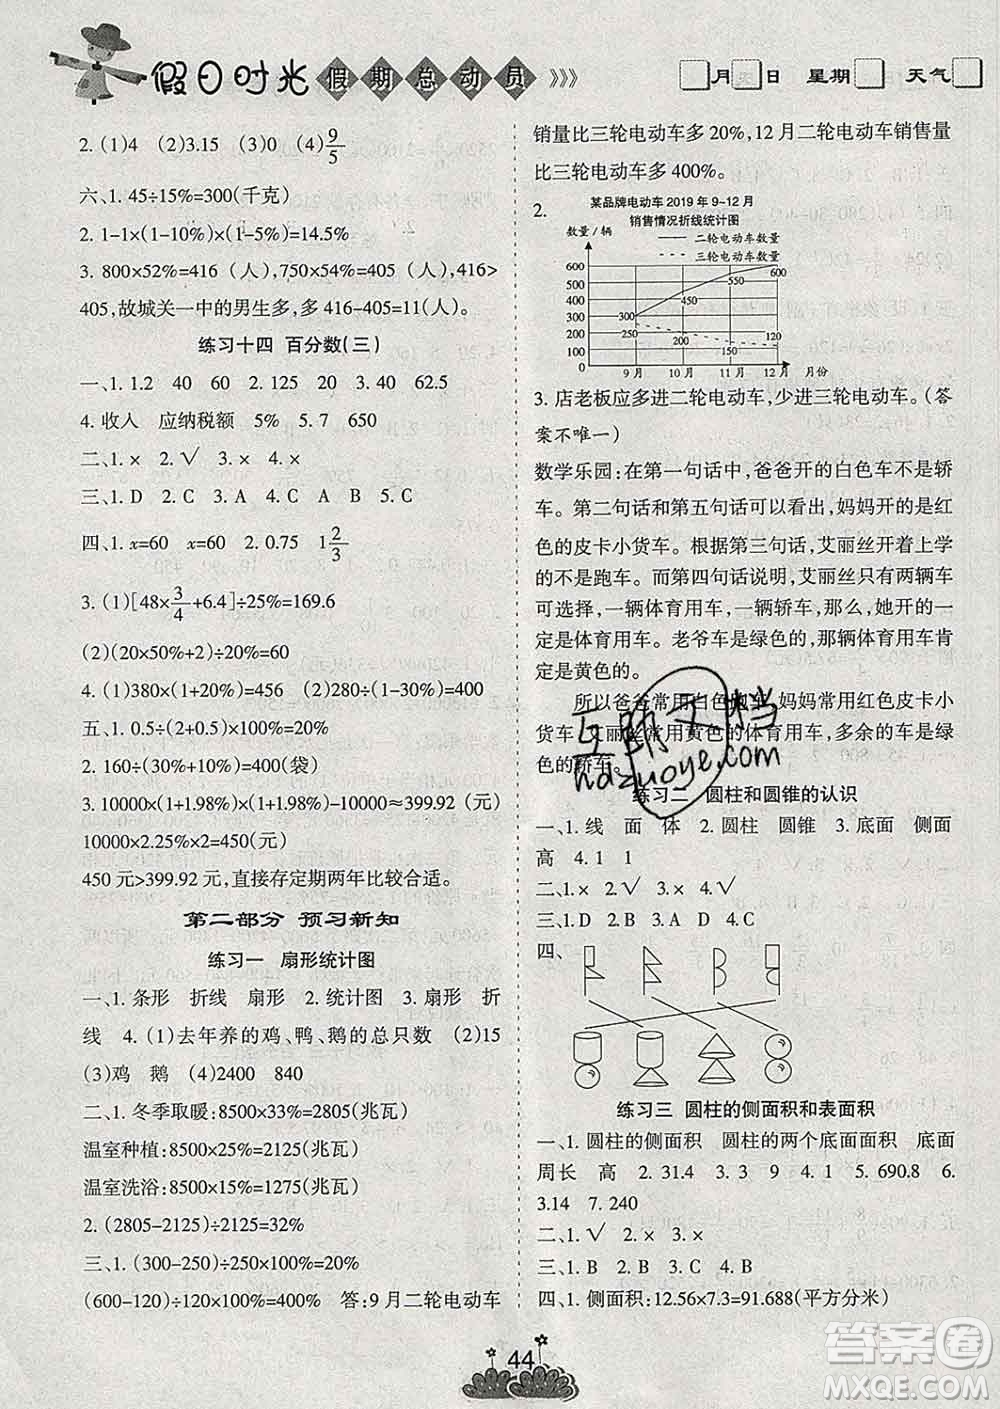 假日时光 假期总动员 》》》 月 日 星期 天气
2. (1)4 (2)3.15 (3)0 (4)9/5
六、1. 45÷15%=300(千克)
2. 1-1×(1-10%)×(1-5%)=14.5%
3. 800×52%=416（人）,750×54%=405（人）,416>
405,故城关一中的男生多,多 416-405=11(人)。
练习十四 百分数(三)
一、1. 1.2 40 60 2. 125 20 3. 40 62.5
4. 收入 应纳税额 5% 5. 7 650
二、1. × 2. √ 3. × 4. ×
三、1. D 2. C 3. A 4. D
四、1. x=60 x=60 2. 0.75 1 2/3
3. (1)[48×3/4+6.4]÷25%=169.6
(2)(20×50%+2)÷20%=60
4. (1)380×(1+20%)=456 (2)380÷(1-5%)=400
五、1. 0.5÷(2+0.5)×100%=20%
2. 160÷(30%+10%)=400(袋)
3. 10000×(1+1.98%)×(1+1.98%)-10000≈399.92（元）
10000×2.25%×2=450(元)
450 元>399.92 元,直接存定期两年比较合适。
第二部分 预习新知
练习一 扇形统计图
一、1. 条形 折线 扇形 2. 统计图 3. 扇形 折
线 4. (1)去年养的鸡、鸭、鹅的总只数 (2)15
(3)鸡 鹅 (4)2400 840
二、1. 冬季取暖：8500×33%=2805(兆瓦)
温室种植：8500×25%=2125(兆瓦)
温室洗浴：8500×15%=1275(兆瓦)
2. (2805-2125)÷2125=32%
三、1. (300-250)÷250×100%=20%
(600-120)÷120×100%=400% 答：9 月二轮电动车
销量比三轮电动车多 20%,12 月二轮电动车销售量
比三轮电动车多 400%。
2. 某品牌电动车 2019 年 9~12 月
销售情况折线统计图
数量/辆
二轮电动车数量
三轮电动车数量
600
500
400
300
200
100
0
300 450 550 600
250 200 140 120
9 月 10 月 11 月 12 月 月份
3. 店老板应多进二轮电动车,少进三轮电动车。（答
案不唯一）
数学乐园：在第一句话中,爸爸开的白色车不是轿
车。第二句话和第五句话可以看出,妈妈开的是红
色的皮卡小货车。根据第三句话,艾丽丝开着上学
的不是跑车。而第四句话说明,艾丽丝只有两辆车
可选择,一辆体育用车,一辆轿车,那么,她开的一
定是体育用车。老爷车是绿色的,那辆体育用车肯
定是黄色的。
所以爸爸常用白色跑车,妈妈常用红色皮卡小货
车,艾丽丝常用黄色的体育用车,多余的车是绿
色的轿车。
互助文档
hdzuoye.com
练习二 圆柱和圆锥的认识
一、1. 线 面 体 2. 圆柱 圆锥 3. 底面 侧面
高 4. 1 1
二、1. × 2. √ 3. × 4. ×
三、1. D 2. C 3. B 4. C
四、
练习三 圆柱的侧面积和表面积
一、1. 圆柱的侧面积 圆柱的两个底面面积 底面
周长 高 2. 31.4 3. 3 9 4. 1 5. 690.8 6.
3.14 7. 240
二、1. √ 2. × 3. × 4. √
三、1. B 2. B 3. C 4. B
四、1. 侧面积：12.56×7.3=91.688(平方分米)
44
答案圈
MXQE.COM